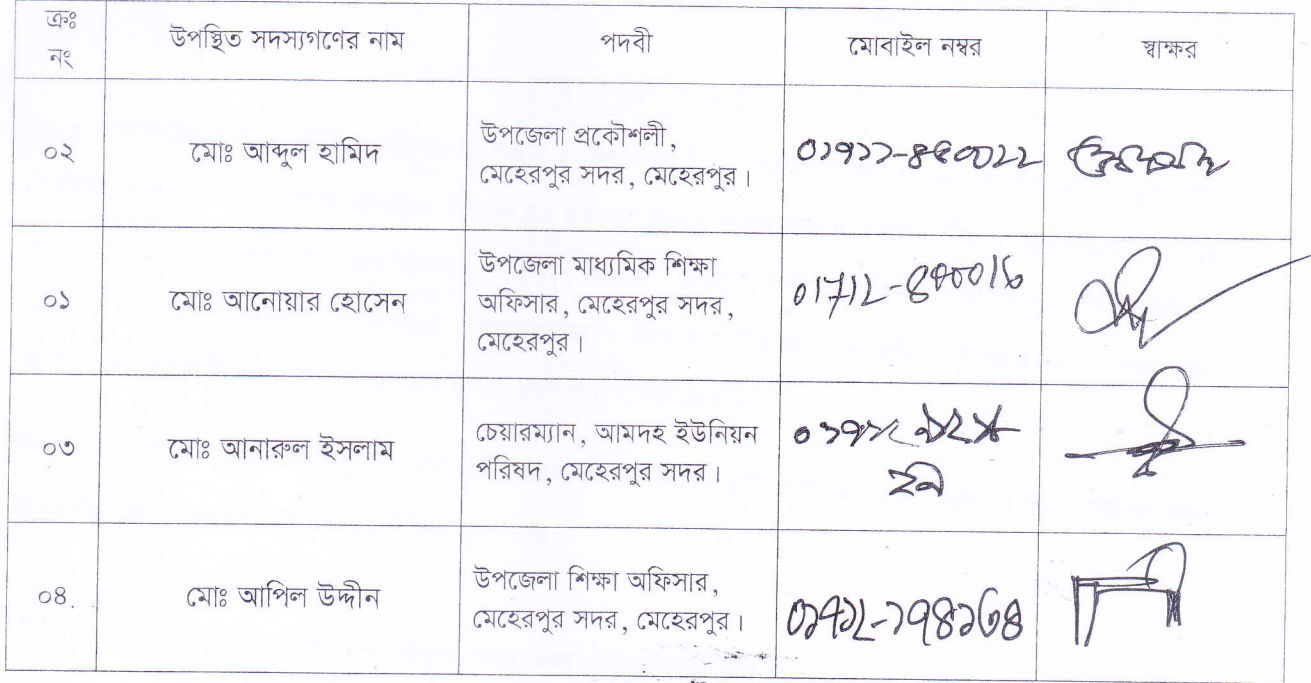 ক্রঃ নং উপস্থিত সদস্যগণের নাম পদবী মোবাইল নম্বর স্বাক্ষর
০২ মোঃ আব্দুল হামিদ উপজেলা প্রকৌশলী,
মেহেরপুর সদর, মেহেরপুর।
০১ মোঃ আনোয়ার হোসেন উপজেলা মাধ্যমিক শিক্ষা
অফিসার, মেহেরপুর সদর,
মেহেরপুর।
০৩ মোঃ আনারুল ইসলাম চেয়ারম্যান, আমদহ ইউনিয়ন
পরিষদ, মেহেরপুর সদর।
০৪. মোঃ আপিল উদ্দীন উপজেলা শিক্ষা অফিসার,
মেহেরপুর সদর, মেহেরপুর।